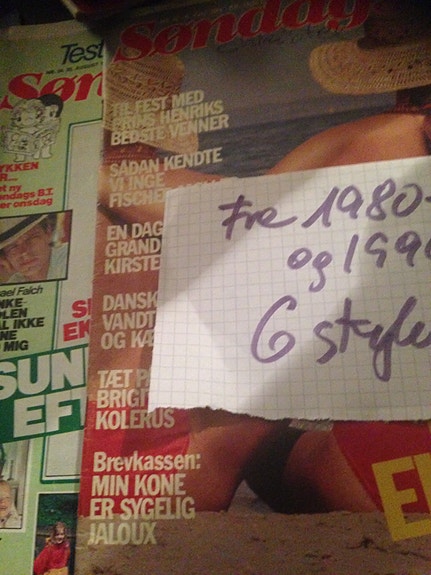 Test
Søn
YKKEN
R...
et ny
ndags B.T.
er onsdag
ael Falch
NKE-
OLEN
AL IKKE
NE
MIG
SUN
EFT
Søndag
TIL FEST MED
PRINS HENRIKS
BEDSTE VENNER
SÅDAN KENDTE
VI INGE
FISCHE
EN DAG
GRAND
KIRSTE
DANSK
VANDT
OG KÆ
TÆT P
BRIGIT
KOLERUS
Brevkassen:
MIN KONE
ER SYGELIG
JALOUX
Fra 1980-
og 199
6 styk